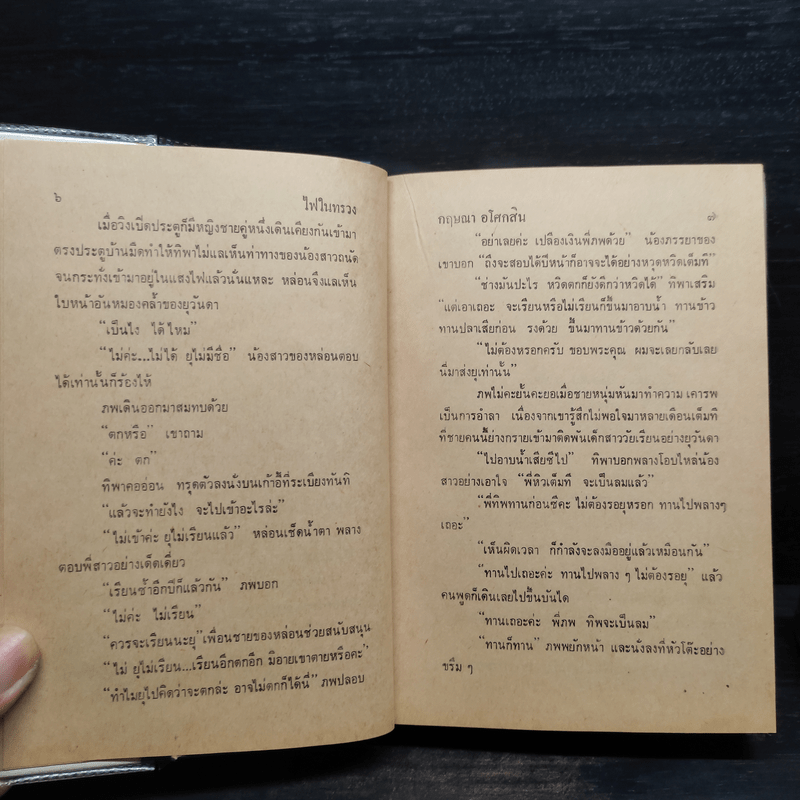 ๖
ไฟในทรวง
เมื่อวิงเปิดประตูก็มีหญิงชายคู่หนึ่งเดินเคียงกันเข้ามา
ตรงประตูบ้านมืดทำให้ทิพาไม่แลเห็นท่าทางของน้องสาวถนัด
จนกระทั่งเข้ามาอยู่ในแสงไฟแล้วนั่นแหละ หล่อนจึงแลเห็น
ใบหน้าอันหมองคล้ำของยุวันดา
“เป็นไง ได้ไหม”
“ไม่ค่ะ...ไม่ได้ ยุไม่มีชื่อ” น้องสาวของหล่อนตอบ
ได้เท่านั้นก็ร้องไห้
ภพเดินออกมาสมทบด้วย
“ตกหรือ” เขาถาม
“ค่ะ ตก”
ทิพาคอออ่อน ทรุดตัวลงนั่งบนเก้าอี้ที่ระเบียงทันที
“แล้วจะทำยังไง จะไปเข้าอะไรล่ะ”
“ไม่เข้าค่ะ ยุไม่เรียนแล้ว” หล่อนเช็ดน้ำตา พลาง
ตอบพี่สาวอย่างเด็ดเดี่ยว
“เรียนซ้ำอีกปีก็แล้วกัน” ภพบอก
“ไม่ค่ะ ไม่เรียน”
“ควรจะเรียนนะยุ” เพื่อนชายของหล่อนช่วยสนับสนุน
“ไม่ ยุไม่เรียน...เรียนอีกตกอีก มิอายเขาตายหรือคะ”
“ทำไมยุไปคิดว่าจะตกล่ะ อาจไม่ตกก็ได้นี่” ภพปลอบ
กฤษณา อโศกสิน
๗
“อย่าเลยค่ะ เปลืองเงินพี่ภพด้วย” น้องภรรยาของ
เขาบอก “ถึงจะสอบได้ปีหน้าก็อาจจะได้อย่างหวุดหวิดเต็มที”
“ช่างมันปะไร หวิดตกก็ยังดีกว่าหวิดได้” ทิพาเสริม
“แต่เอาเถอะ จะเรียนหรือไม่เรียนก็ขึ้นมาอาบน้ำ ทานข้าว
ทานปลาเสียก่อน รงด้วย ขึ้นมาทานข้าวด้วยกัน”
“ไม่ต้องหรอกครับ ขอบพระคุณ ผมจะเลยกลับเลย
นี่มาส่งยุเท่านั้น”
ภพไม่คะยั้นคะยอเมื่อชายหนุ่มหันมาทำความ เคารพ
เป็นการอำลา เนื่องจากเขารู้สึกไม่พอใจมาหลายเดือนเต็มที
ที่ชายคนนี้ย่างกรายเข้ามาติดพันเด็กสาววัยเรียนอย่างยุวันดา
“ไปอาบน้ำเสียซีไป” ทิพาบอกพลางโอบไหล่น้อง
สาวอย่างเอาใจ “พี่หิวเต็มที จะเป็นลมแล้ว”
“พี่ทิพทานก่อนซีคะ ไม่ต้องรอยุหรอก ทานไปพลางๆ
เถอะ”
“เห็นผิดเวลา ก็กำลังจะลงมืออยู่แล้วเหมือนกัน”
“ทานไปเถอะค่ะ ทานไปพลาง ๆ ไม่ต้องรอยุ” แล้ว
คนพูดก็เดินเลยไปขึ้นบันได
“ทานเถอะค่ะ พี่ภพ ทิพจะเป็นลม”
“ทานก็ทาน” ภพพยักหน้า และนั่งลงที่หัวโต๊ะอย่าง
ขรึม ๆ